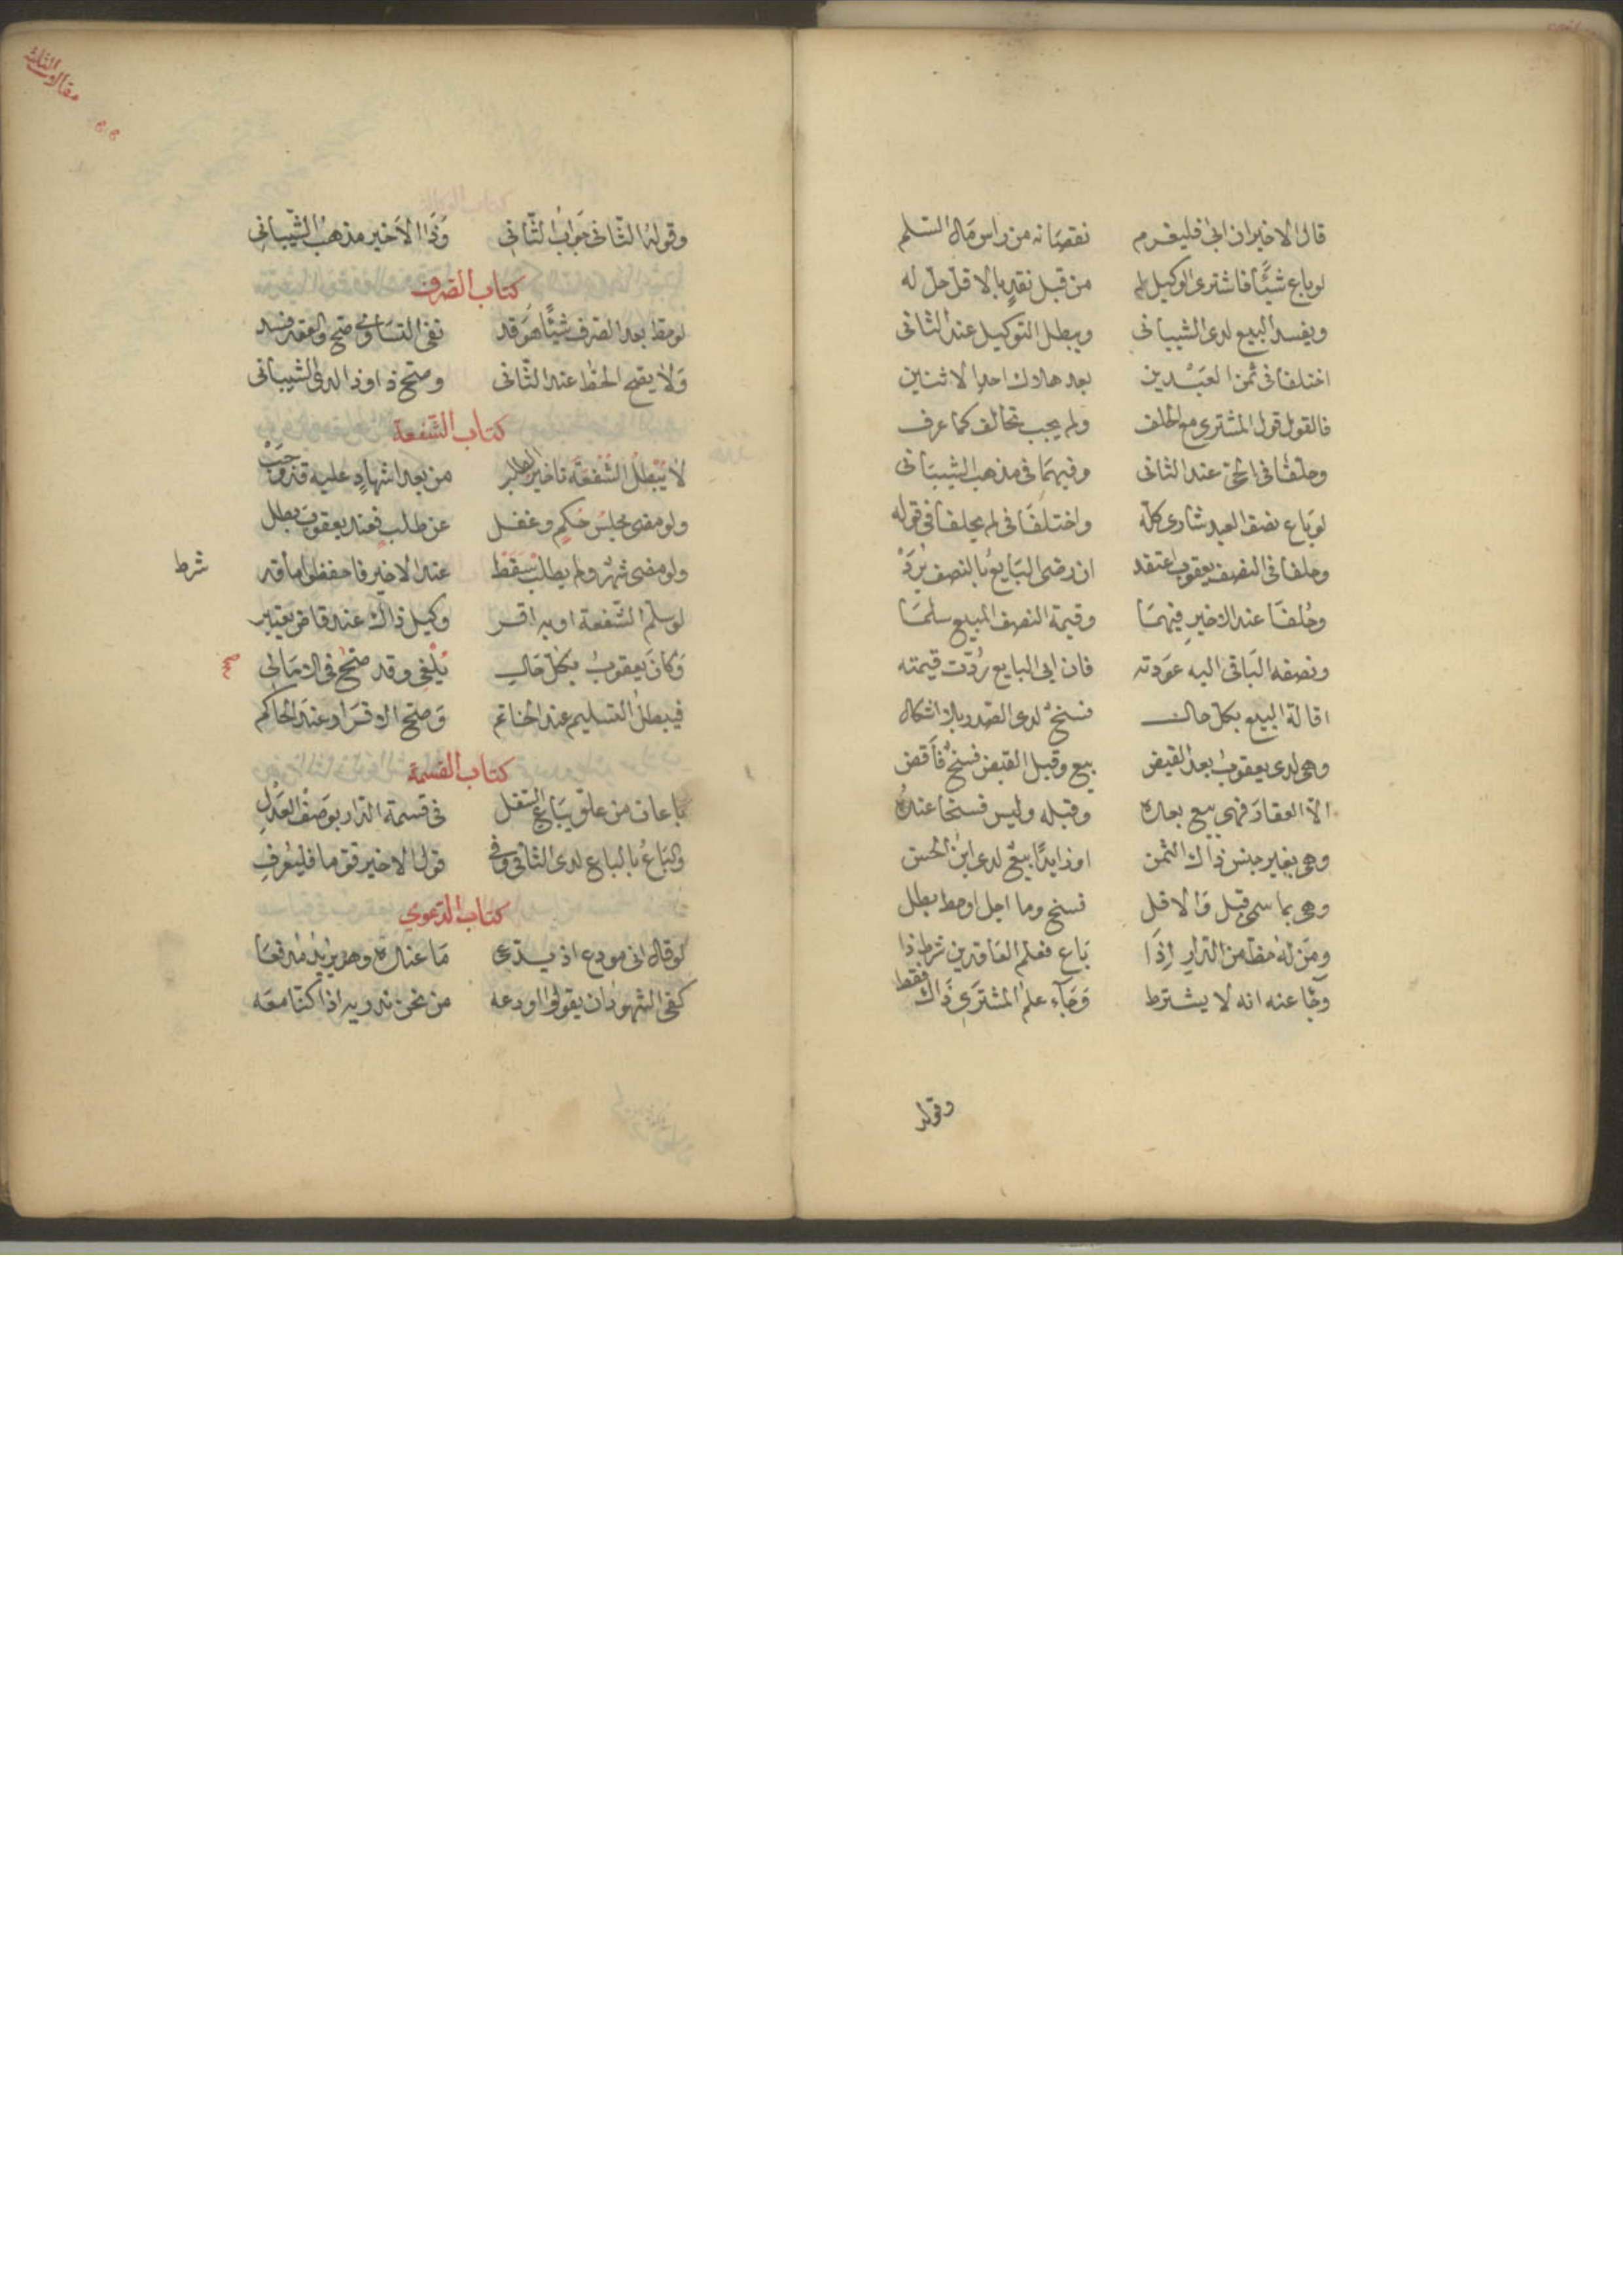 قال الاخير ان ابى فليغرم نقصانه من راس مال السلم
لو باع شيئا فاشترى الوكيل له من قبل نقد بالاقل حل له
ويفسد البيع لدى الشيبانى ويبطل التوكيل عند الثانى
اختلفا فى ثمن العبدين بعد هلاك احد الاثنين
فالقول قول المشترى مع الحلف ولم يجب تحالف كما عرف
وحلفا فى الحى عند الثانى وفيهما فى مذهب الشيبانى
لو باع نصف العبد شارى كله واختلفا فى لم يحلفا فى قوله
وحلفا فى النصف يعقوب اعتقد ان رضى البايع بالنصف يرد
وحلفا عند الاخير فيهما وقيمة النصف المبيع سلما
ونصفه الباقى اليه عودته فان ابى البايع ردت قيمته
اقالة البيع بكل حال فسخ لدى الصدر بلا اشكال
وهى لدى يعقوب بعد القبض بيع وقبل القبض فسخ فاقض
الا العقار فهى بيع بعده وقبله وليس فسخا عنده
وهى بغير جنس ذاك الثمن او زايدا بيع لدى ابن الحسن
وهى بما سمى قبل والاقل فسخ وما اجل او حط بطل
ومن له حظ من الدار اذا باع فعلم العاقدين شرط ذا
وجا عنه انه لا يشترط وجاء علم المشترى ذاك فقط
وقوله
مقالات الثالثة
وقوله الثانى جواب الثانى وذا الاخير مذهب الشيبانى
كتاب الصرف
لو حط بعد الصرف شيئا هو قد نفى التساوى صح والعقد فسد
ولا يصح الحط عند الثانى وصح ذا وذا لدى الشيبانى
كتاب الشفعة
لا يبطل الشفعة تاخير الطلب من بعد اشهاد عليه قد وجب
ولو مضى مجلس حكم وغفل عن طلب فعند يعقوب بطل
ولو مضى شهر ولم يطلب سقط عند الاخير فاحفظوا ما قد
شرط
لو سلم الشفعة او به اقر وكيل ذاك عند قاض يعتبر
وكان يعقوب بكل حال يلغى وقد صح فى الامالى
صح
فيبطل التسليم عند الخاتم وصح الاقرار عند الحاكم
كتاب القسمة
باعان من علو يباع السفل فى قسمة الدار بوصف العدل
والباع بالباع لدى الثانى وفى قول الاخير قوما فليعرف
كتاب الدعوى
لو قال انى مودع اذ يدعى ما عنده وهو يريد مدفعا
كفى الشهود ان يقولوا اودعه من نحن ندريه اذا كنا معه